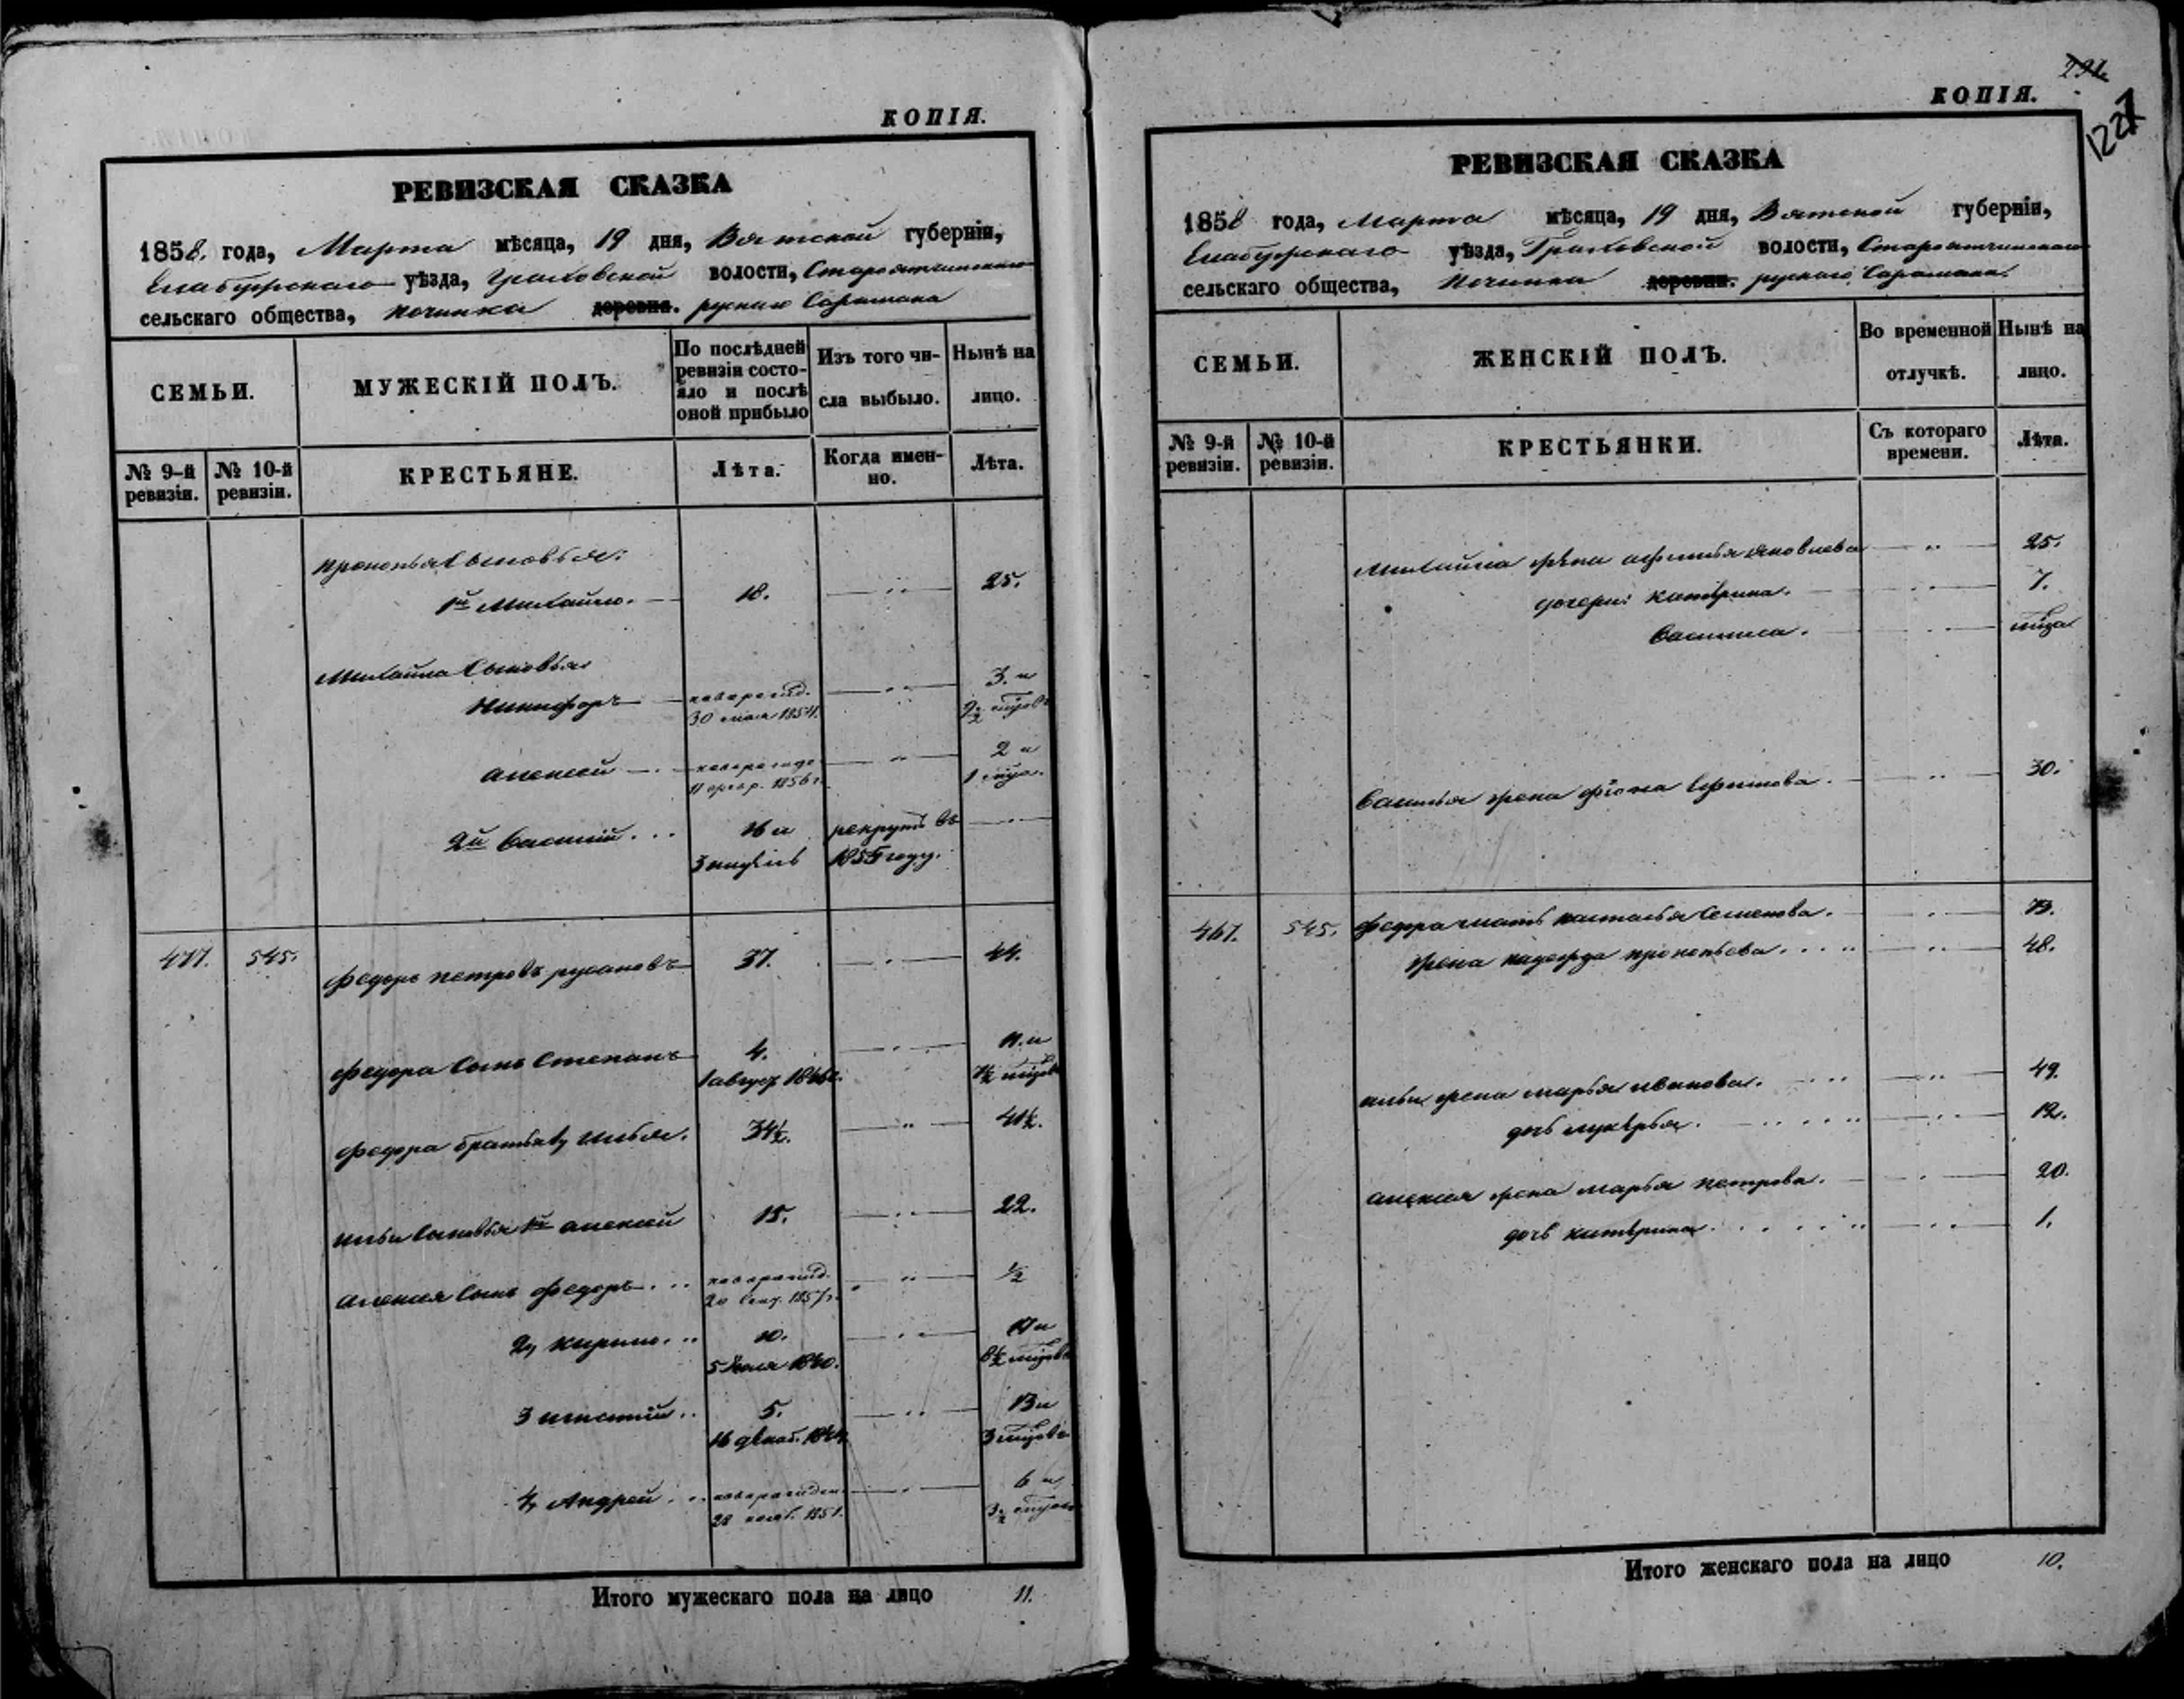 КОПІЯ.
РЕВИЗСКАЯ СКАЗКА
1858. года, Марта мѣсяца, 19 дня, Вятской губерніи,
Елабужскаго уѣзда, Граховской волости,
сельскаго общества, починка деревня. руснаго Сарамака
СЕМЬИ.
МУЖЕСКІЙ ПОЛЪ.
По послѣдней ревизіи состо-
яло и послѣ оной прибыло
Изъ того чи-
сла выбыло.
Нынѣ на
лицо.
№ 9-й ревизіи.
№ 10-й ревизіи.
КРЕСТЬЯНЕ.
Лѣта.
Когда имен-
но.
Лѣта.
Прокопья Сыновья:
1й Михайло. 18. 25.
Михайла Сыновья
Никифоръ новорожд. 3. и
30 мая 1854.
Алексей новорожд 2 и
1856 г. 1 мца.
2й Василій 16 и рекрутъ въ
1855 году.
477. 545. Федоръ Петровъ Русановъ 37. 44.
Федора Сынъ Степанъ 4. 11. и
1 август 1846. 7½ мцовъ
Федора братья Илья. 34½. 41½.
Ильи Сыновья 1й Алексей 15. 22.
Алексея Сынъ Федоръ новорожд. ½
20 Сент. 1857 г.
2, Кирило 10. 17 и
5 Июля 1840. 8½ мцовъ
3 Игнатій 5. 13 и
16 декаб. 1844. 3 мцовъ
4, Андрей новорожден. 6 и
28 нояб. 1851. 3½ мцовъ
Итого мужескаго пола на лицо 11.
291
КОПІЯ.
1227
РЕВИЗСКАЯ СКАЗКА
1858 года, Марта мѣсяца, 19 дня, Вятской губерніи,
Елабужскаго уѣзда, Граховской волости,
сельскаго общества, Починка деревни. рускаго Сарамака.
СЕМЬИ.
ЖЕНСКІЙ ПОЛЪ.
Во временной
отлучкѣ.
Нынѣ на
лицо.
№ 9-й ревизіи.
№ 10-й ревизіи.
КРЕСТЬЯНКИ.
Съ котораго
времени.
Лѣта.
Михайла жена Афимья Яковлева 25.
дочери: Катѣрина. 7.
Василиса. мца
Василья жена Фіона Ефимова. 30.
467. 545. Федора мать Наталья Семенова. 73.
жена Надежда Прокопьева. 48.
Ильи жена Марья Иванова. 49.
дочь Лукѣрья. 12.
Алексея жена Марья Петрова. 20.
дочь Катѣрина 1.
Итого женскаго пола на лицо 10.